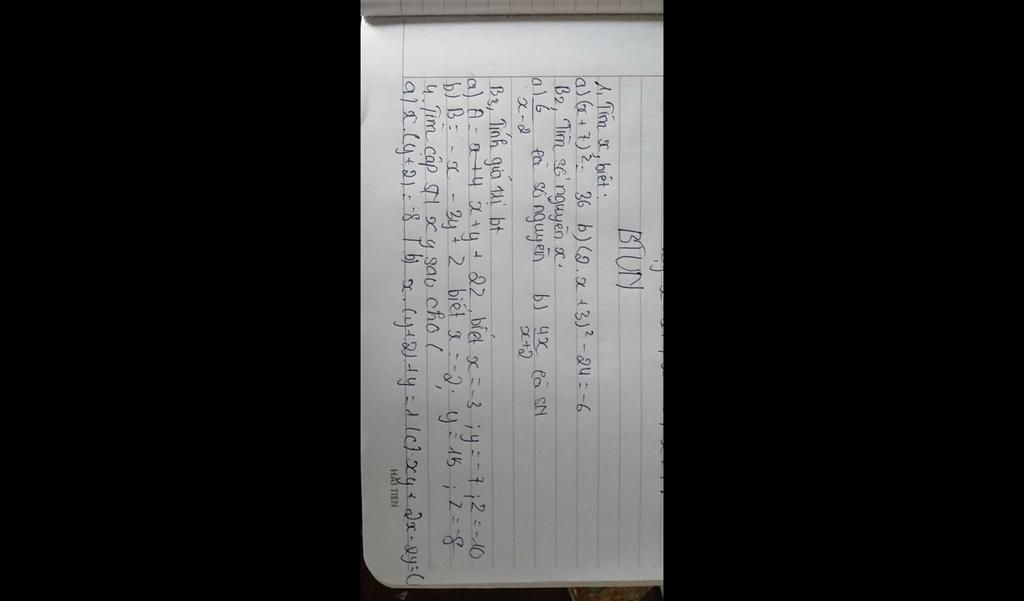 BTVN
1, Tìm x, biết:
a) (x + 7)² = 36 b) (2.x + 3)² - 24 = -6
B2, Tìm số nguyên x.
a) 6/x-2 là số nguyên b) 4x/x+2 là SN
B3, Tính giá trị bt
a) A = x + 4 x + y + 2Z, biết x = -3 ; y = -7 ; Z = -10
b) B = - x - 3y + Z biết x = -2; y = 15 ; Z = -8
4. Tìm cặp SN x y sao cho (
a) x.(y+2) = -8 | b) x.(y+2)+y = 1 | c). xy + 2x - 2y =
HẢI TIẾN